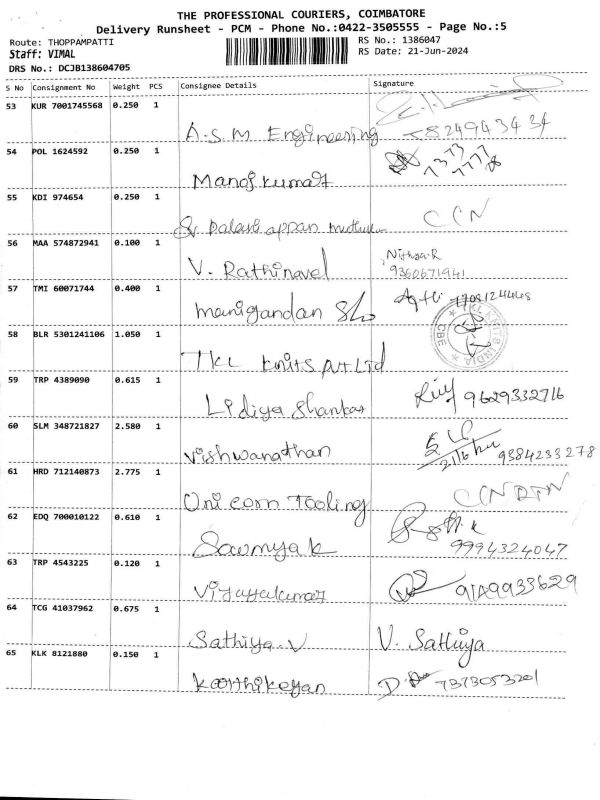 THE PROFESSIONAL COURIERS, COIMBATORE
Delivery Runsheet - PCM - Phone No.:0422-3505555 - Page No.:5
Route: THOPPAMPATTI RS No.: 1386047
Staff: VIMAL RS Date: 21-Jun-2024
DRS No.: DCJB138604705
S No Consignment No Weight PCS Consignee Details Signature
53 KUR 7001745568 0.250 1
A.S.M Engineering 824943434
54 POL 1624592 0.250 1
Manoj kumar
55 KDI 974654 0.250 1 CCN
56 MAA 574872941 0.100 1 Nithya.R
V. Rathinavel 9360671941
57 TMI 60071744 0.400 1
manigandan
58 BLR 5301241106 1.050 1 TKL KNITS INDIA CBE
TKL Knits Pvt Ltd
59 TRP 4389090 0.615 1
Lidiya Shankar 9629332716
60 SLM 348721827 2.580 1
Vishwanathan 9384233278
61 HRD 712140873 2.775 1
Unicorn Tooling
62 EDQ 700010122 0.610 1
Sowmya k 9994324047
63 TRP 4543225 0.120 1
Vijayakumar
64 TCG 41037962 0.675 1
Sathiya.V V. Sathiya
65 KLK 8121880 0.150 1
Karthikeyan 7373053201